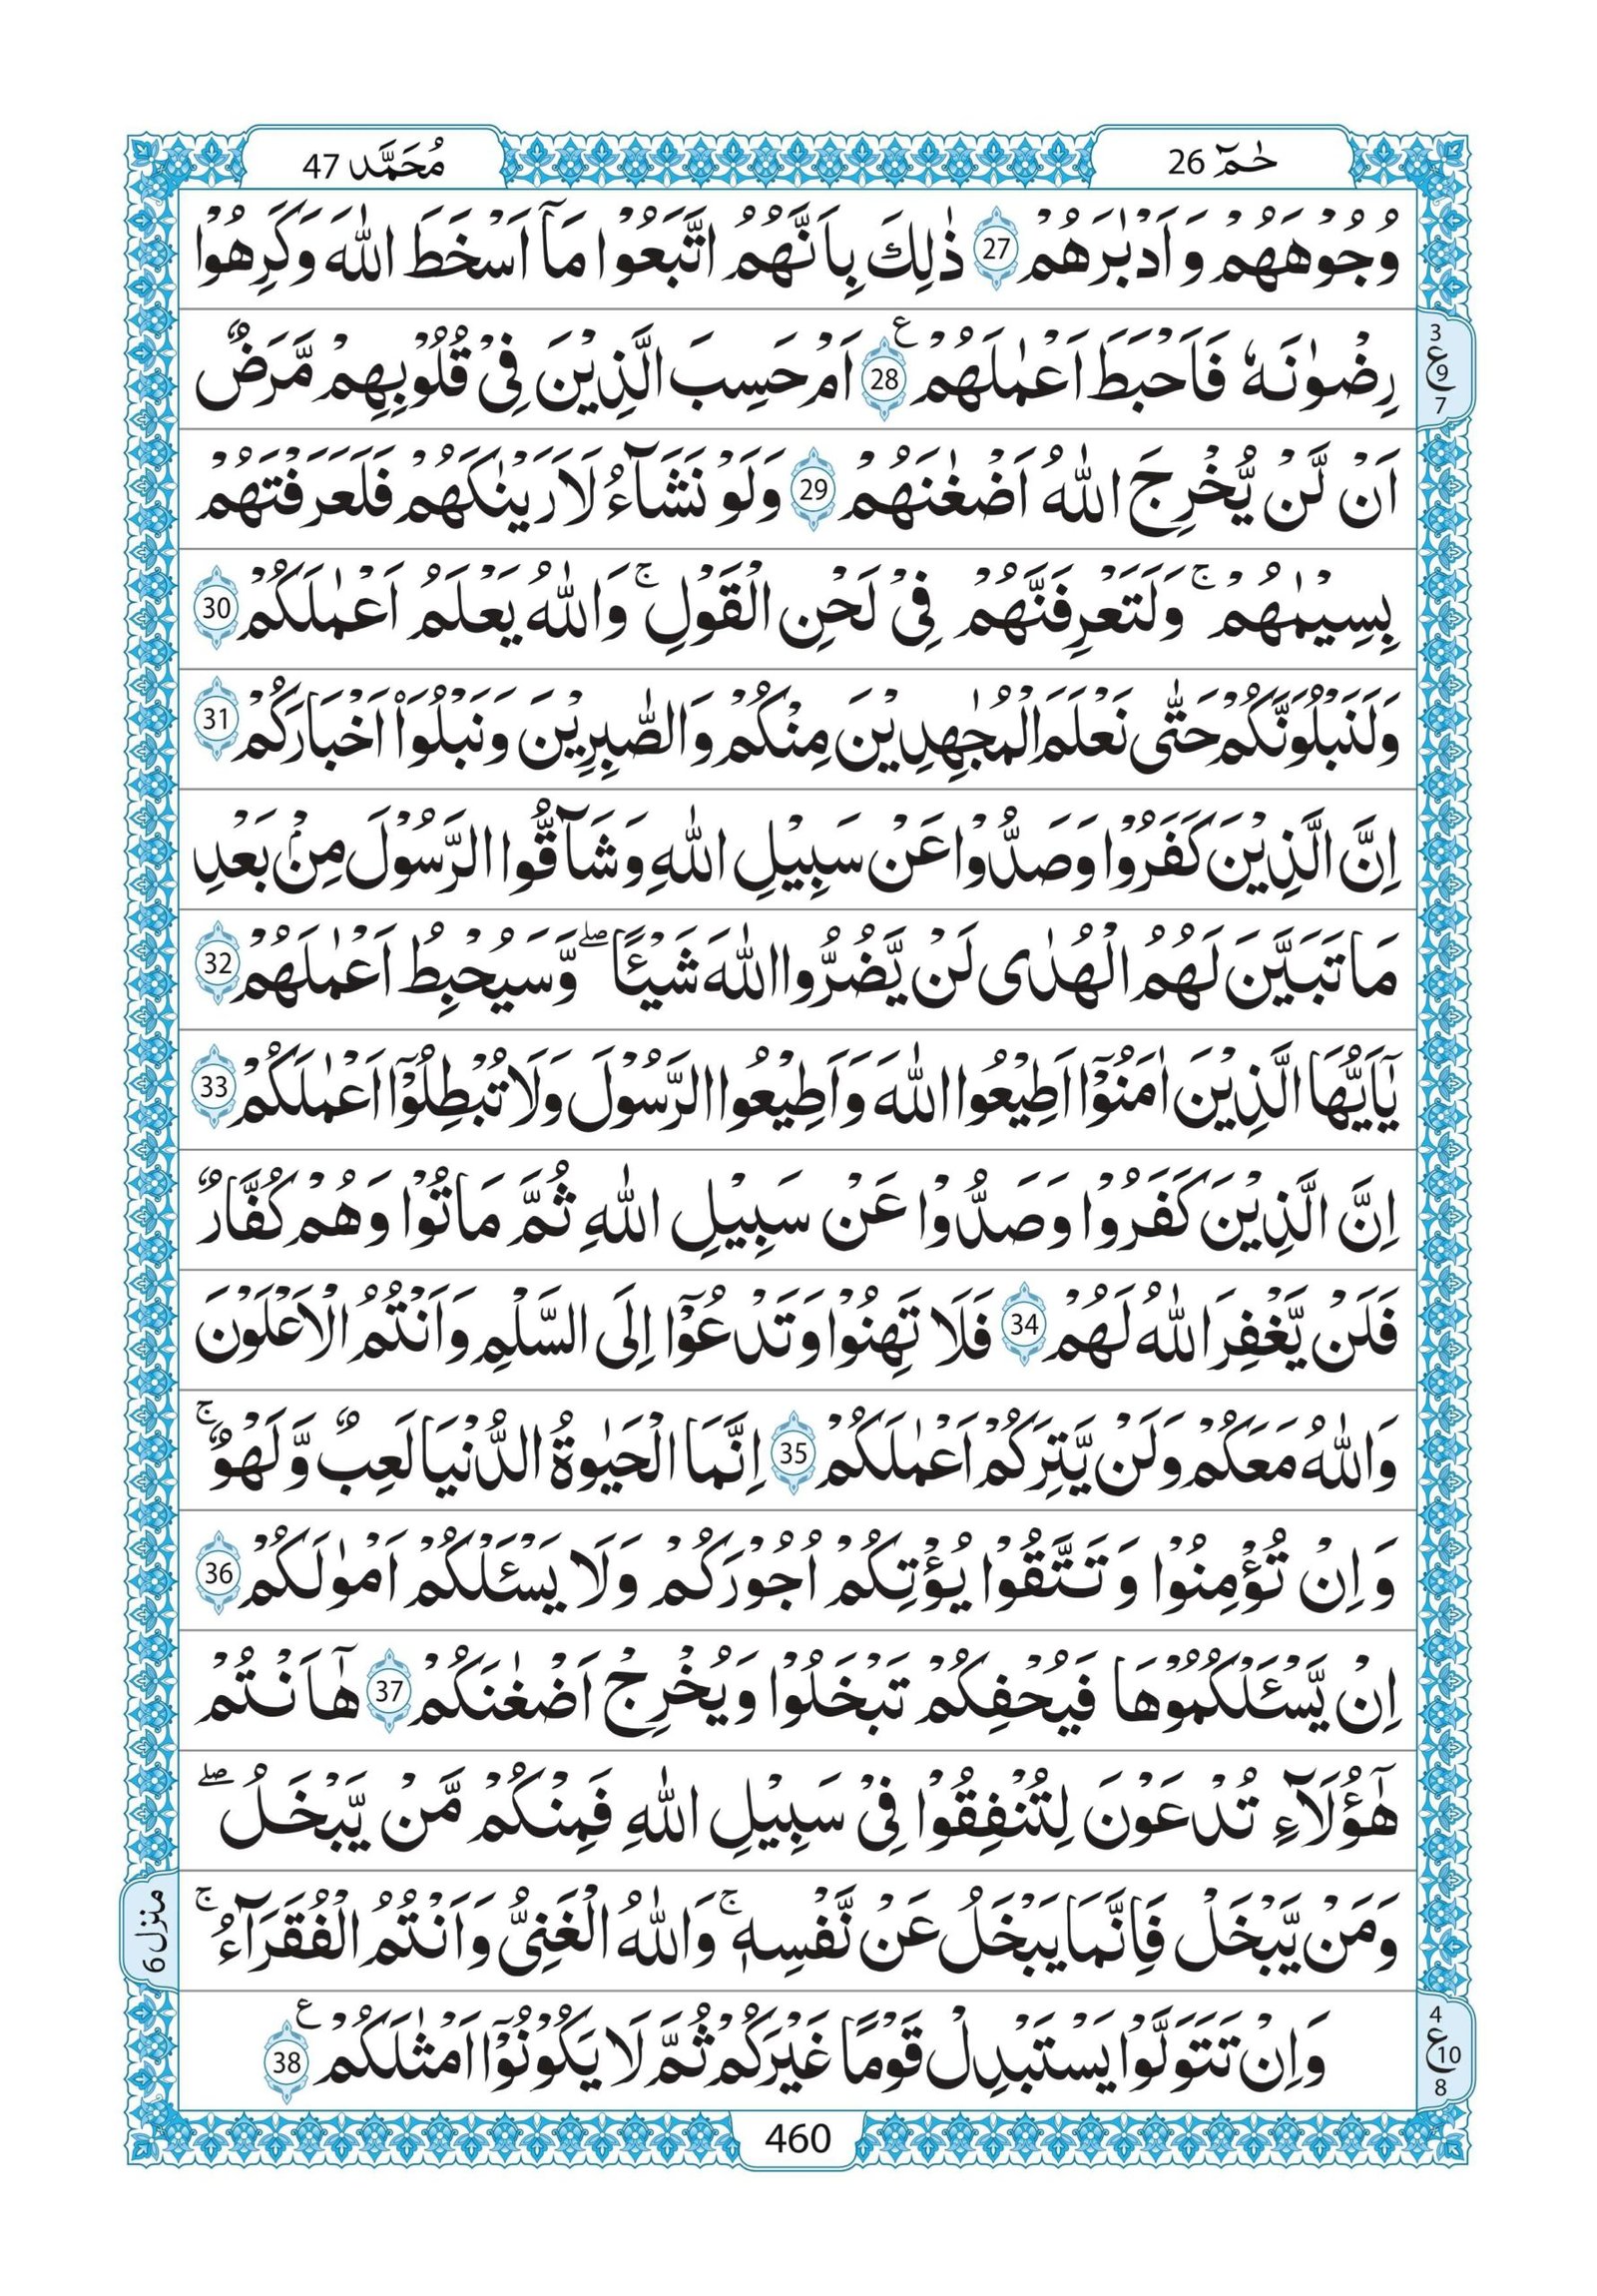 حٰمٓ 26
مُحَمَّد 47
وُجُوْهَهُمْ وَ اَدْبٰرَهُمْ 27 ذٰلِكَ بِاَنَّهُمُ اتَّبَعُوْا مَاۤ اَسْخَطَ اللّٰهَ وَكَرِهُوْا
رِضْوٰنَهٗ فَاَحْبَطَ اَعْمٰلَهُمْ ع 28 اَمْ حَسِبَ الَّذِيْنَ فِيْ قُلُوْبِهِمْ مَّرَضٌ
3
ع 9
7
اَنْ لَّنْ يُّخْرِجَ اللّٰهُ اَضْغٰنَهُمْ 29 وَلَوْ نَشَآءُ لَاَرَيْنٰكَهُمْ فَلَعَرَفْتَهُمْ
بِسِيْمٰهُمْ ۚ وَلَتَعْرِفَنَّهُمْ فِيْ لَحْنِ الْقَوْلِ ۚ وَاللّٰهُ يَعْلَمُ اَعْمٰلَكُمْ 30
وَلَنَبْلُوَنَّكُمْ حَتّٰى نَعْلَمَ الْمُجٰهِدِيْنَ مِنْكُمْ وَالصّٰبِرِيْنَ وَنَبْلُوَا۟ اَخْبَارَكُمْ 31
اِنَّ الَّذِيْنَ كَفَرُوْا وَصَدُّوْا عَنْ سَبِيْلِ اللّٰهِ وَشَآقُّوا الرَّسُوْلَ مِنْۢ بَعْدِ
مَا تَبَيَّنَ لَهُمُ الْهُدٰى لَنْ يَّضُرُّوا اللّٰهَ شَيْـًٔا ۖ وَّسَيُحْبِطُ اَعْمٰلَهُمْ 32
يٰۤاَيُّهَا الَّذِيْنَ اٰمَنُوْۤا اَطِيْعُوا اللّٰهَ وَاَطِيْعُوا الرَّسُوْلَ وَلَا تُبْطِلُوْۤا اَعْمٰلَكُمْ 33
اِنَّ الَّذِيْنَ كَفَرُوْا وَصَدُّوْا عَنْ سَبِيْلِ اللّٰهِ ثُمَّ مَاتُوْا وَهُمْ كُفَّارٌ
فَلَنْ يَّغْفِرَ اللّٰهُ لَهُمْ 34 فَلَا تَهِنُوْا وَتَدْعُوْۤا اِلَى السَّلْمِ وَاَنْتُمُ الْاَعْلَوْنَ
وَاللّٰهُ مَعَكُمْ وَلَنْ يَّتِرَكُمْ اَعْمٰلَكُمْ 35 اِنَّمَا الْحَيٰوةُ الدُّنْيَا لَعِبٌ وَّلَهْوٌ ۚ
وَاِنْ تُؤْمِنُوْا وَتَتَّقُوْا يُؤْتِكُمْ اُجُوْرَكُمْ وَلَا يَسْـَٔلْكُمْ اَمْوٰلَكُمْ 36
اِنْ يَّسْـَٔلْكُمُوْهَا فَيُحْفِكُمْ تَبْخَلُوْا وَيُخْرِجْ اَضْغٰنَكُمْ 37 هٰۤاَنْتُمْ
هٰۤؤُلَآءِ تُدْعَوْنَ لِتُنْفِقُوْا فِيْ سَبِيْلِ اللّٰهِ فَمِنْكُمْ مَّنْ يَّبْخَلُ ۖ
وَمَنْ يَّبْخَلْ فَاِنَّمَا يَبْخَلُ عَنْ نَّفْسِهٖ ۚ وَاللّٰهُ الْغَنِيُّ وَاَنْتُمُ الْفُقَرَآءُ ۚ
منزل 6
وَاِنْ تَتَوَلَّوْا يَسْتَبْدِلْ قَوْمًا غَيْرَكُمْ ثُمَّ لَا يَكُوْنُوْۤا اَمْثٰلَكُمْ ع 38
4
ع 10
8
460